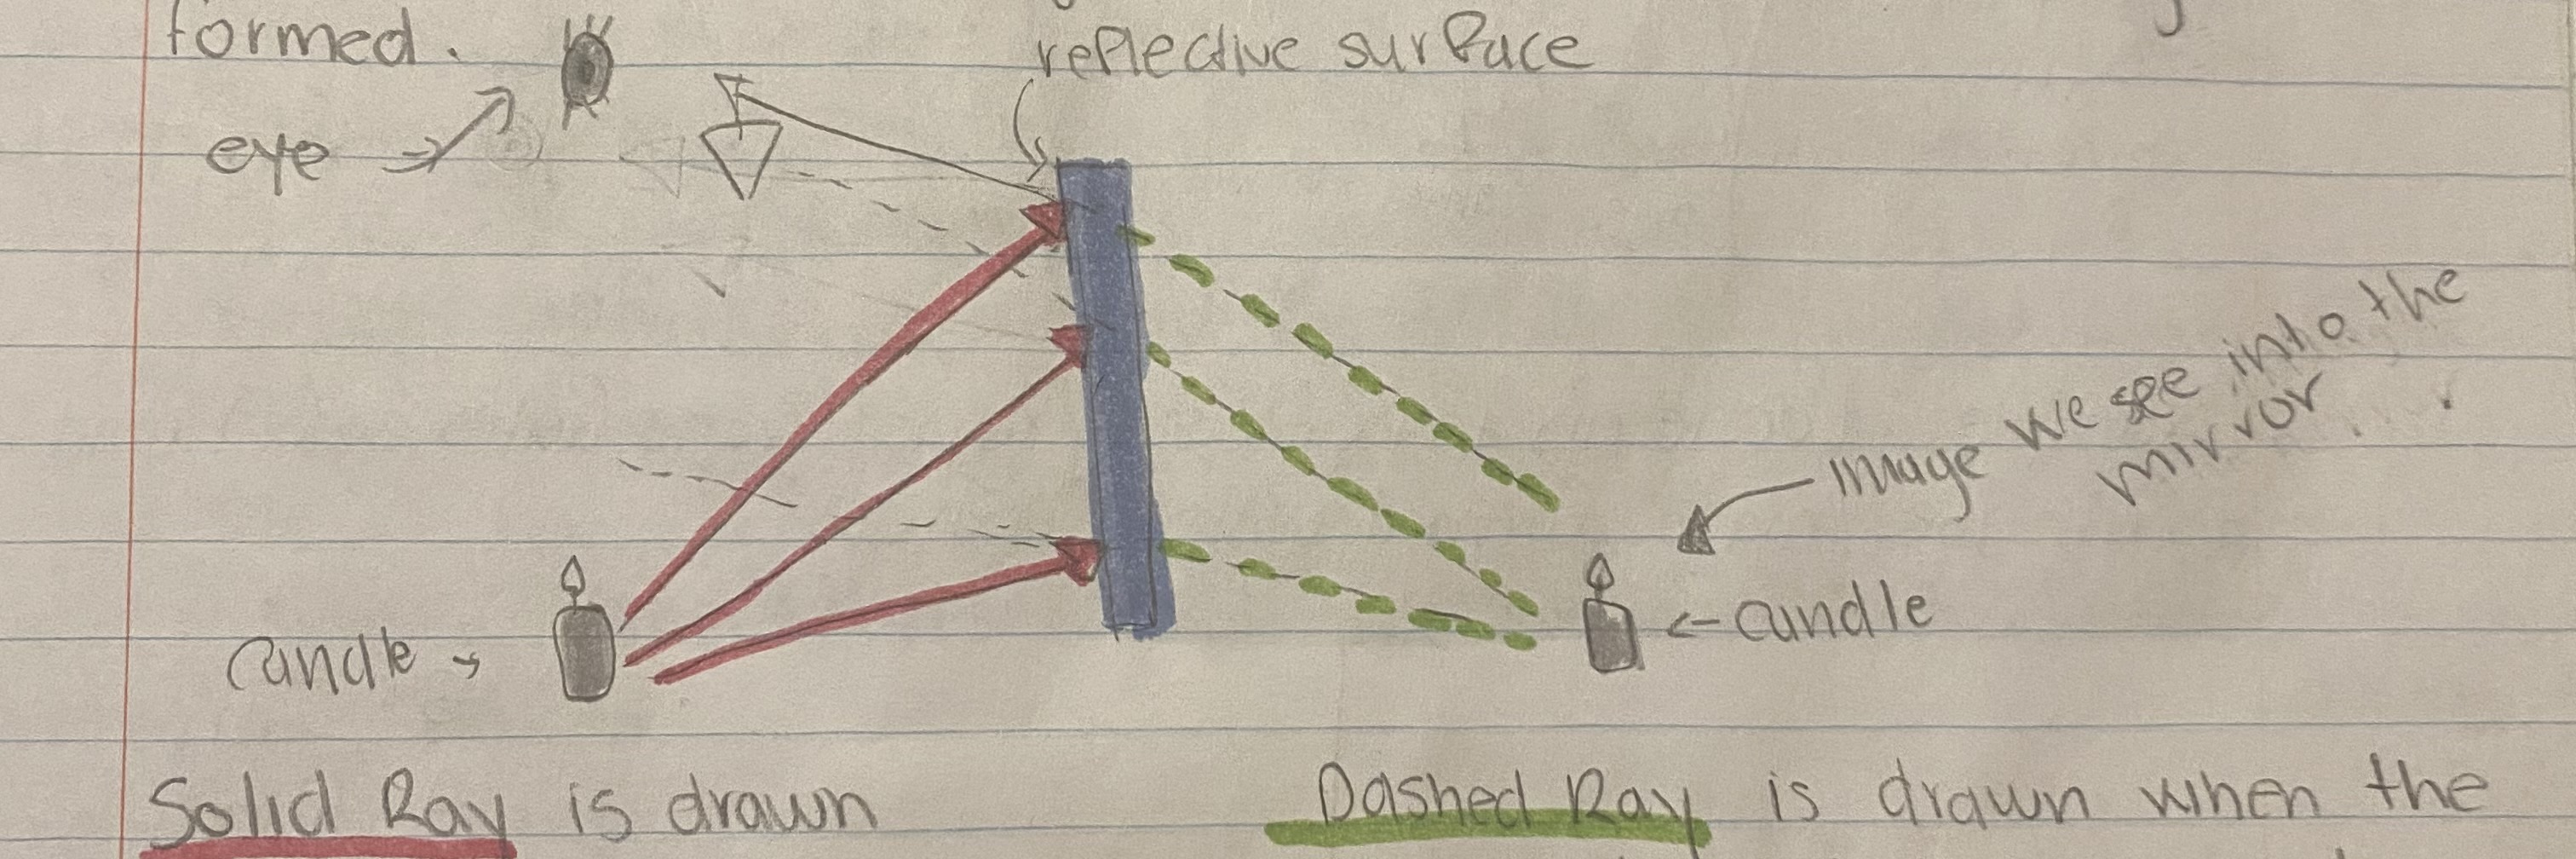 formed.
reflective surface
eye
image we see into the
mirror
candle
candle
Solid Ray is drawn
Dashed Ray is drawn when the